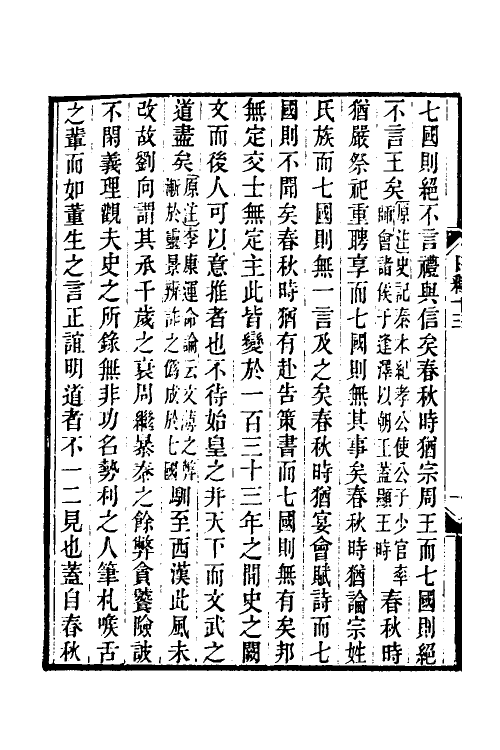 七國則絕不言禮與信矣春秋時猶宗周王而七國則絕
不言王矣原注史記秦本紀孝公使公子少官率師會諸侯于逢澤以朝王蓋顯王時春秋時
猶嚴祭祀重聘享而七國則無其事矣春秋時猶論宗姓
氏族而七國則無一言及之矣春秋時猶宴會賦詩而七
國則不聞矣春秋時猶有赴告策書而七國則無有矣邦
無定交士無定主此皆變於一百三十三年之間史之闕
文而後人可以意推者也不待始皇之并天下而文武之
道盡矣原注李康運命論云文薄之弊漸於靈景辨詐之僞成於七國馴至西漢此風未
改故劉向謂其承千歲之衰周繼暴秦之餘弊貪饕險詖
不閑義理觀夫史之所錄無非功名勢利之人筆札喉舌
之輩而如董生之言正誼明道者不一二見也蓋自春秋